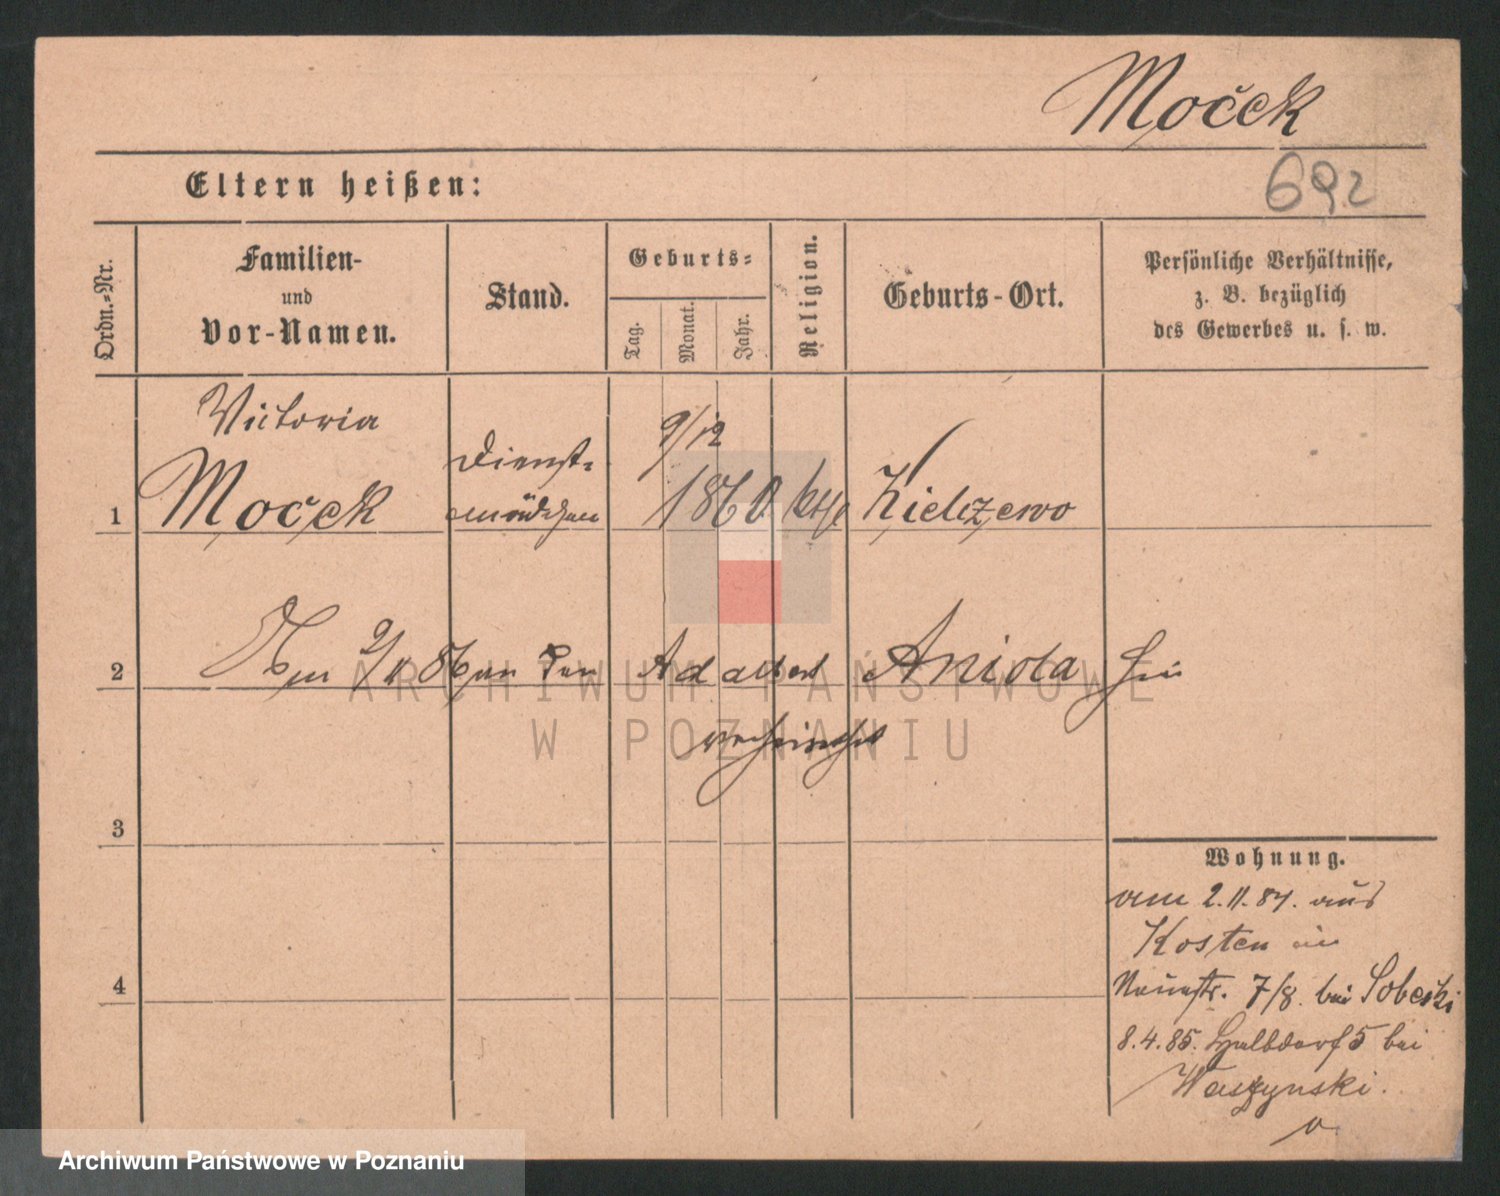 Moček
692
Eltern heißen:
Ordn.-Nr.
Familien-
und
Vor-Namen.
Stand.
Geburts-
Tag.
Monat.
Jahr.
Religion.
Geburts-Ort.
Persönliche Verhältnisse,
z. B. bezüglich
des Gewerbes u. s. w.
1
Victoria
Moček
Dienst-
mädchen
9/12
1860
Kielczewo
2
Am 86 an den Adalbert Aniola hier
verheirathet
3
4
Wohnung.
am 2.11.84. aus
Kosten in
Neuestr. 7/8. bei Sobecki
8.4.85. Halbdorf 5 bei
Waszynski.
ARCHIWUM PAŃSTWOWE
W POZNANIU
Archiwum Państwowe w Poznaniu